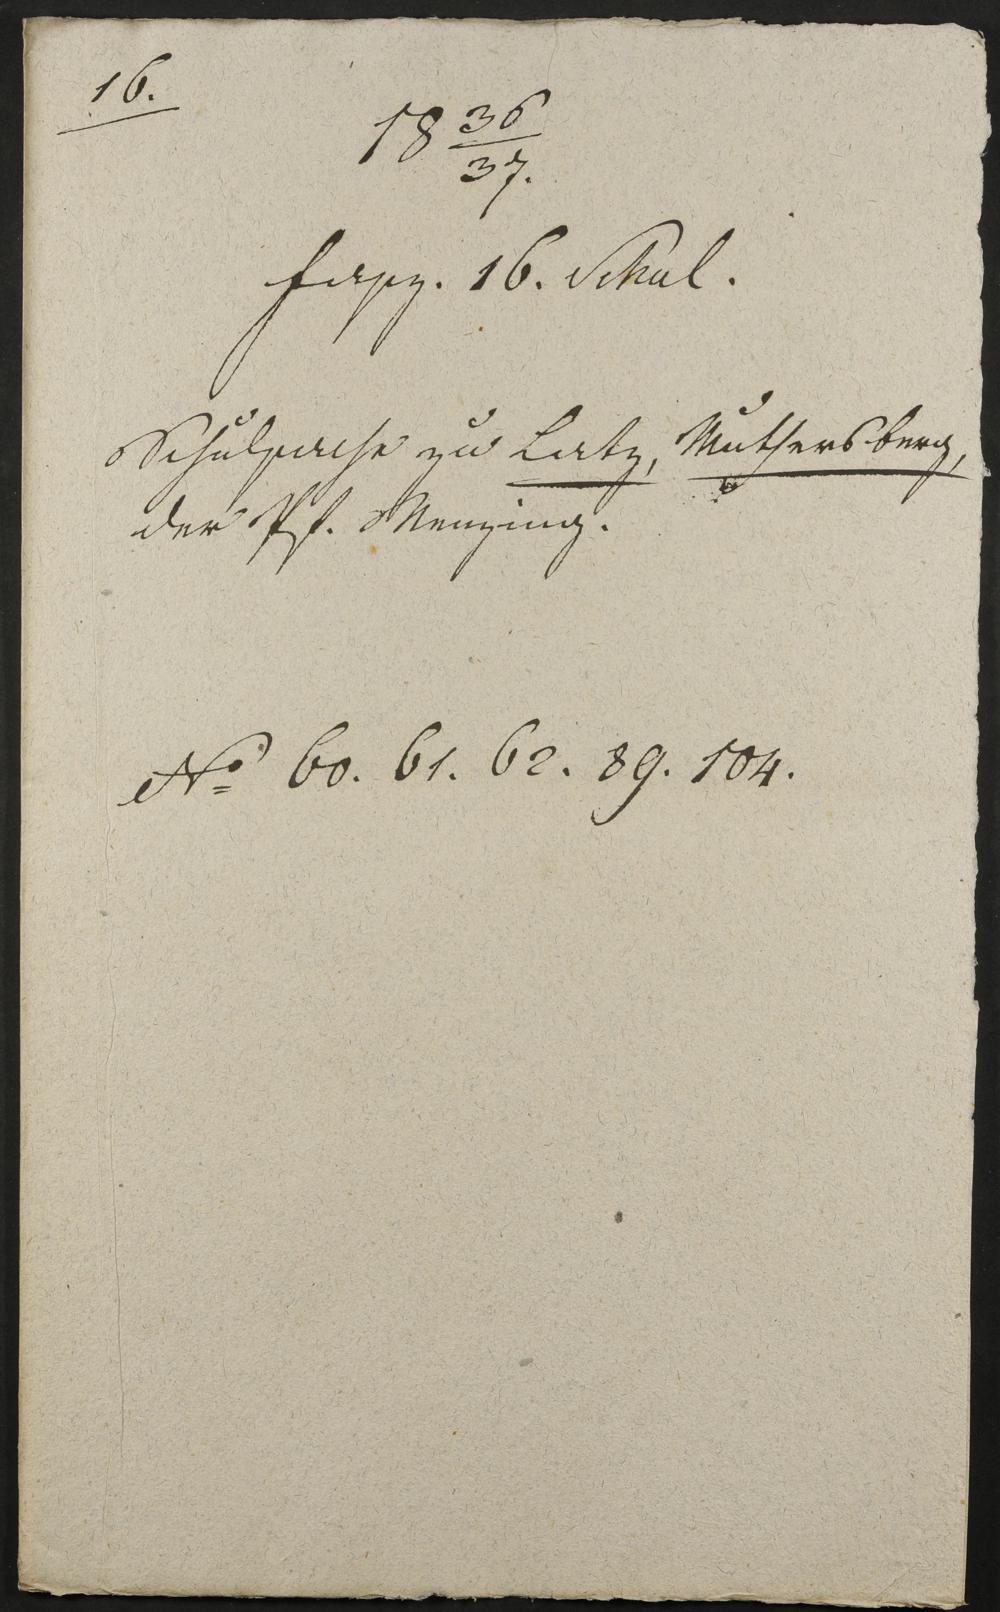 16.
18 36/37.
Fasz. 16. Schul.
Schulsache zu Latz, Muthersberg,
der Pf. Nenzing.
No 60. 61. 62. 89. 104.